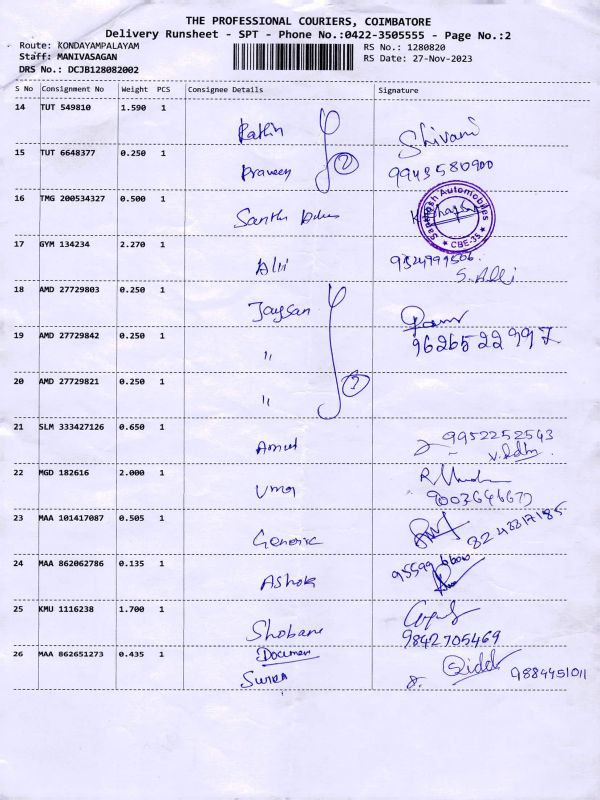 THE PROFESSIONAL COURIERS, COIMBATORE
Delivery Runsheet - SPT - Phone No.:0422-3505555 - Page No.:2
Route: KONDAYAMPALAYAM RS No.: 1280820
Staff: MANIVASAGAN RS Date: 27-Nov-2023
DRS No.: DCJB128082002
S No Consignment No Weight PCS Consignee Details Signature
14 TUT 549810 1.590 1
Rathin Shivani
15 TUT 6648377 0.250 1
Praveen 2 9943580900
16 TMG 200534327 0.500 1
Santhosh Automobiles
* CBE-35 *
17 GYM 134234 2.270 1
Alli
S. Alli
18 AMD 27729803 0.250 1
Jaysan
19 AMD 27729842 0.250 1
" 9626522997
20 AMD 27729821 0.250 1
" 3
21 SLM 333427126 0.650 1
9952252543
22 MGD 182616 2.000 1
Uma
23 MAA 101417087 0.505 1
Generic
24 MAA 862062786 0.135 1
Ashok
25 KMU 1116238 1.700 1
Shobana 9842705469
26 MAA 862651273 0.435 1
Document
9884451011